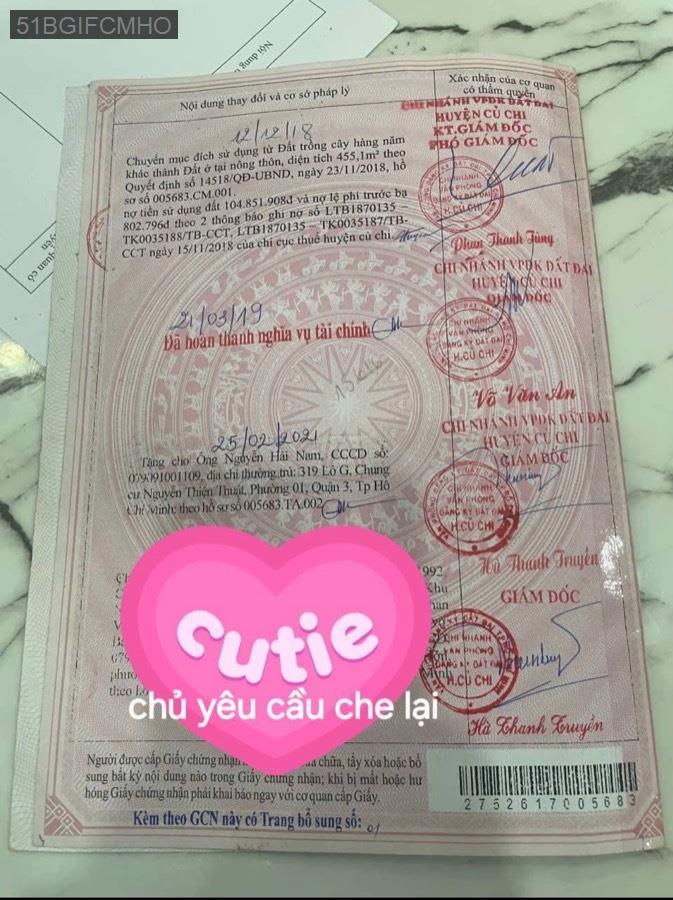 51BGIFCMHO
Nội dung thay đổi và cơ sở pháp lý
Xác nhận của cơ quan
có thẩm quyền
12/12/18
Chuyển mục đích sử dụng từ Đất trồng cây hàng năm
khác thành Đất ở tại nông thôn, diện tích 455,1m² theo
Quyết định số 14518/QĐ-UBND, ngày 23/11/2018, hồ
sơ số 005683.CM.001.
nợ tiền sử dụng đất 104.851.908đ và nợ lệ phí trước bạ
802.796đ theo 2 thông báo ghi nợ số LTB1870135 –
TK0035188/TB-CCT, LTB1870135 – TK0035187/TB-
CCT ngày 15/11/2018 của chi cục thuế huyện củ chi.
CHI NHÁNH VPĐK ĐẤT ĐAI
HUYỆN CỦ CHI
KT.GIÁM ĐỐC
PHÓ GIÁM ĐỐC
CHI NHÁNH
VĂN PHÒNG
H.CỦ CHI
Phan Thanh Tùng
21/03/19
Đã hoàn thành nghĩa vụ tài chính
CHI NHÁNH VPĐK ĐẤT ĐAI
HUYỆN CỦ CHI
GIÁM ĐỐC
CHI NHÁNH
VĂN PHÒNG
ĐĂNG KÝ ĐẤT ĐAI
H.CỦ CHI
Võ Văn An
25/02/2021
Tặng cho Ông Nguyễn Hải Nam, CCCD số:
079091001109, địa chỉ thường trú: 319 Lô G, Chung
cư Nguyễn Thiện Thuật, Phường 01, Quận 3, Tp Hồ
Chí Minh; theo hồ sơ số 005683.TA.002
CHI NHÁNH VPĐK ĐẤT ĐAI
HUYỆN CỦ CHI
GIÁM ĐỐC
CHI NHÁNH
VĂN PHÒNG
ĐĂNG KÝ ĐẤT ĐAI
H.CỦ CHI
Hà Thanh Truyền
992,
Khu
Minh
theo
cutie
chủ yêu cầu che lại
GIÁM ĐỐC
CHI NHÁNH
VĂN PHÒNG
ĐĂNG KÝ ĐẤT ĐAI
H.CỦ CHI
Hà Thanh Truyền
Người được cấp Giấy chứng nhận chữa, tẩy xóa hoặc bổ
sung bất kỳ nội dung nào trong Giấy chứng nhận; khi bị mất hoặc hư
hỏng Giấy chứng nhận phải khai báo ngay với cơ quan cấp Giấy.
2752617005683
Kèm theo GCN này có Trang bổ sung số: 01